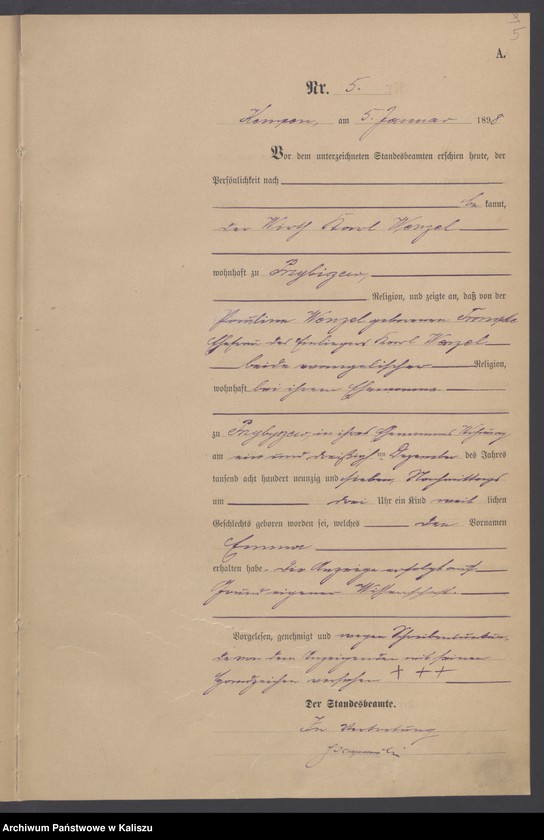 A.
Nr. 5.
Kempen, am 5. Januar 1898
Vor dem unterzeichneten Standesbeamten erschien heute, der
Persönlichkeit nach
be kannt,
der Wirth Karl Wenzel
wohnhaft zu
Religion, und zeigte an, daß von der
Paulina Wenzel geborenen
Ehefrau des Einliegers Karl Wenzel
beide evangelischer Religion,
wohnhaft bei ihrem Ehemanne
zu in ihres Ehemannes Wohnung
am ein und dreißigsten Dezember des Jahres
tausend acht hundert neunzig und sieben, Nachmittags
um drei Uhr ein Kind weib lichen
Geschlechts geboren worden sei, welches den Vornamen
Emma
erhalten habe. Die Anzeige erfolgt auf
Grund eigener Wissenschaft.
Vorgelesen, genehmigt und wegen Schreibensunkun-
de von dem Anzeigenden mit seinem
Handzeichen versehen + + +
Der Standesbeamte.
In Vertretung
Archiwum Państwowe w Kaliszu